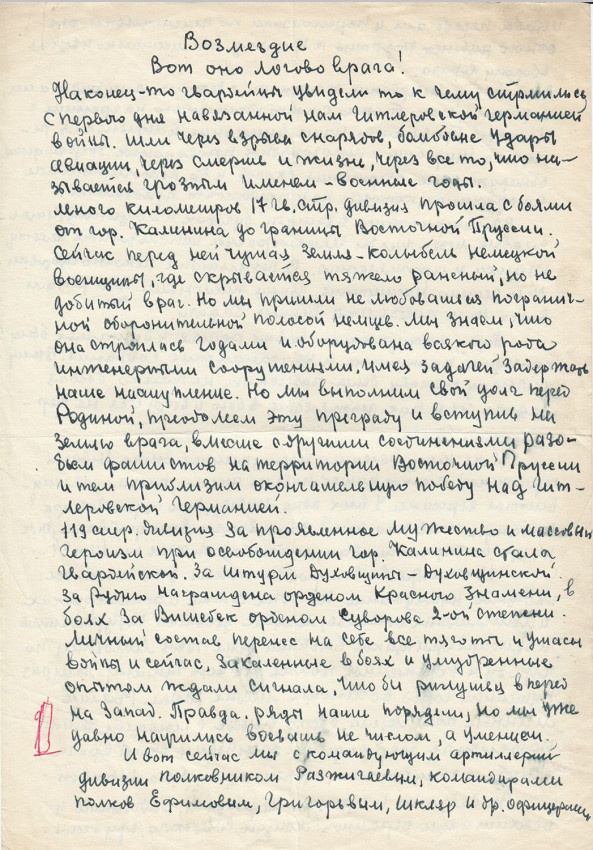 Возмездие
Вот оно логово врага!
Наконец-то гвардейцы увидели то к чему стремились
с первого дня навязанной нам гитлеровской германией
войны. Шли через взрывы снарядов, бомбовые удары
авиации, через смерть и жизнь, через все то, что на-
зывается грозным именем – военные годы.
Много километров 17 гв. стр. дивизия прошла с боями
от гор. Калинина до границы Восточной Пруссии.
Сейчас перед ней чужая земля – колыбель немецкой
военщины, где скрывается тяжело раненый, но не
добитый враг. Но мы пришли не любоваться погранич-
ной оборонительной полосой немцев. Мы знаем, что
она строилась годами и оборудована всякого рода
инженерными сооружениями, имея задачей задержать
наше наступление. Но мы выполним свой долг перед
Родиной, преодолеем эту преграду и вступив на
землю врага, вместе с другими соединениями разо-
бьем фашистов на территории Восточной Пруссии
и тем приблизим окончательную победу над гит-
леровской Германией.
119 стр. дивизия за проявленное мужество и массовый
героизм при освобождении гор. Калинина стала
гвардейской. За штурм Духовщины – Духовщинской.
За Рудню награждена орденом Красного Знамени, в
боях за Витебск орденом Суворова 2-ой степени.
Личный состав перенес на себе все тяготы и ужасы
войны и сейчас, закаленные в боях и умудренные
опытом ждали сигнала, что бы ринуться вперед
на Запад. Правда, ряды наши поредели, но мы уже
давно научились воевать не числом, а умением.
И вот сейчас мы с командующим артиллерией
дивизии полковником Разжигаевым, командирами
полков Ефимовым, Григорьевым, Шкляр и др. офицерами